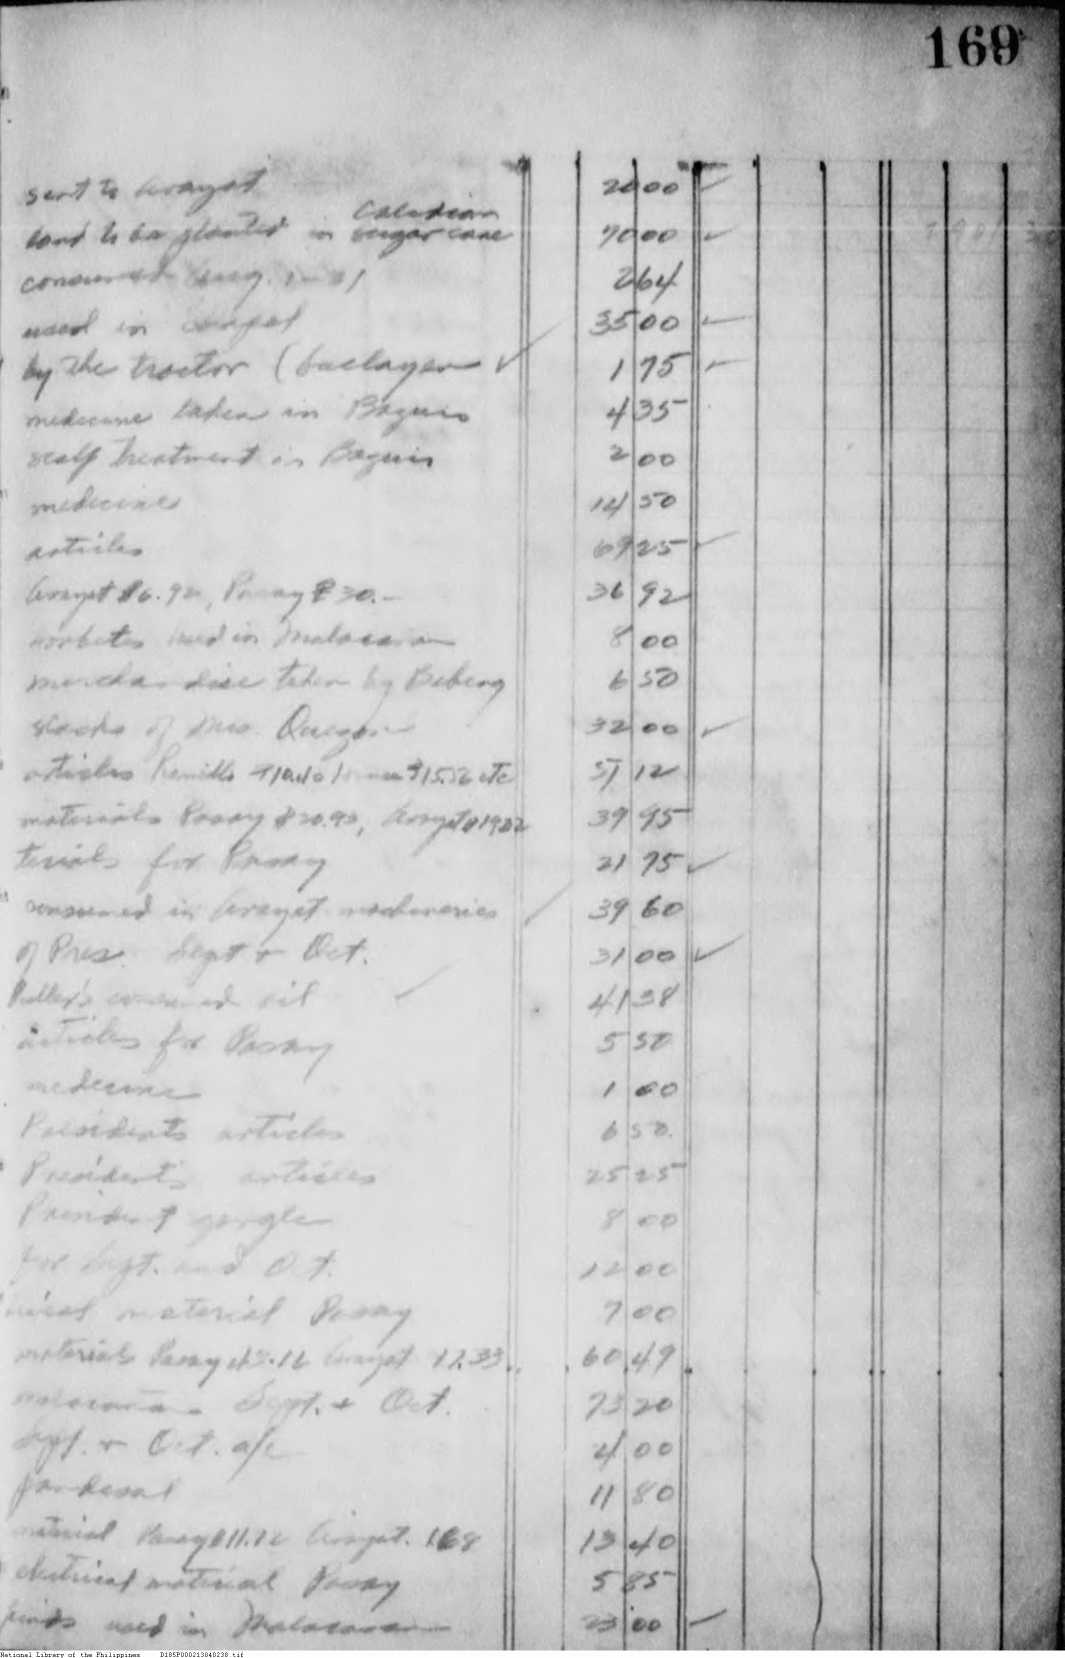 169
sent to Arayat 20 00
Caladian
land to be planted in sugar cane 70 00
consumed Aug. 1-31 2 64
used in 35 00
by the tractor (Baclayon 1 75
medicine taken in Baguio 4 35
scalp treatment in Baguio 2 00
medicine 14 50
articles 69 25
Arayat ₱6.92, Pasay ₱30.- 36 92
sorbetes used in Malacanan 8 00
merchandise taken by Bebeng 6 50
stocks of Mrs. Quezon 32 00
articles etc 51 12
materials Pasay ₱20.93, Arayat ₱19.02 39 95
terials for Pasay 21 75
consumed in Arayat machineries 39 60
of Pres. Sept + Oct. 31 00
consumed oil 41 38
articles for Pasay 5 50
medicine 1 00
Presidents articles 6 50
President's articles 25 25
President gargle 8 00
for Sept. and Oct. 12 00
material Pasay 7 00
materials Pasay 43.16 Arayat 17.33 60 49
malacanan Sept. + Oct. 73 20
Sept. + Oct. a/c 4 00
pandesal 11 80
material Pasay ₱11.72 Arayat. 1.68 13 40
electrical material Pasay 5 85
used in Malacanan 23 00
National Library of the Philippines D185P000213040238.tif